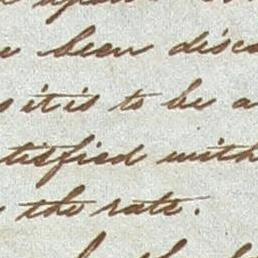 upon
been disc
s it is to be a
tisfied with
the rate.